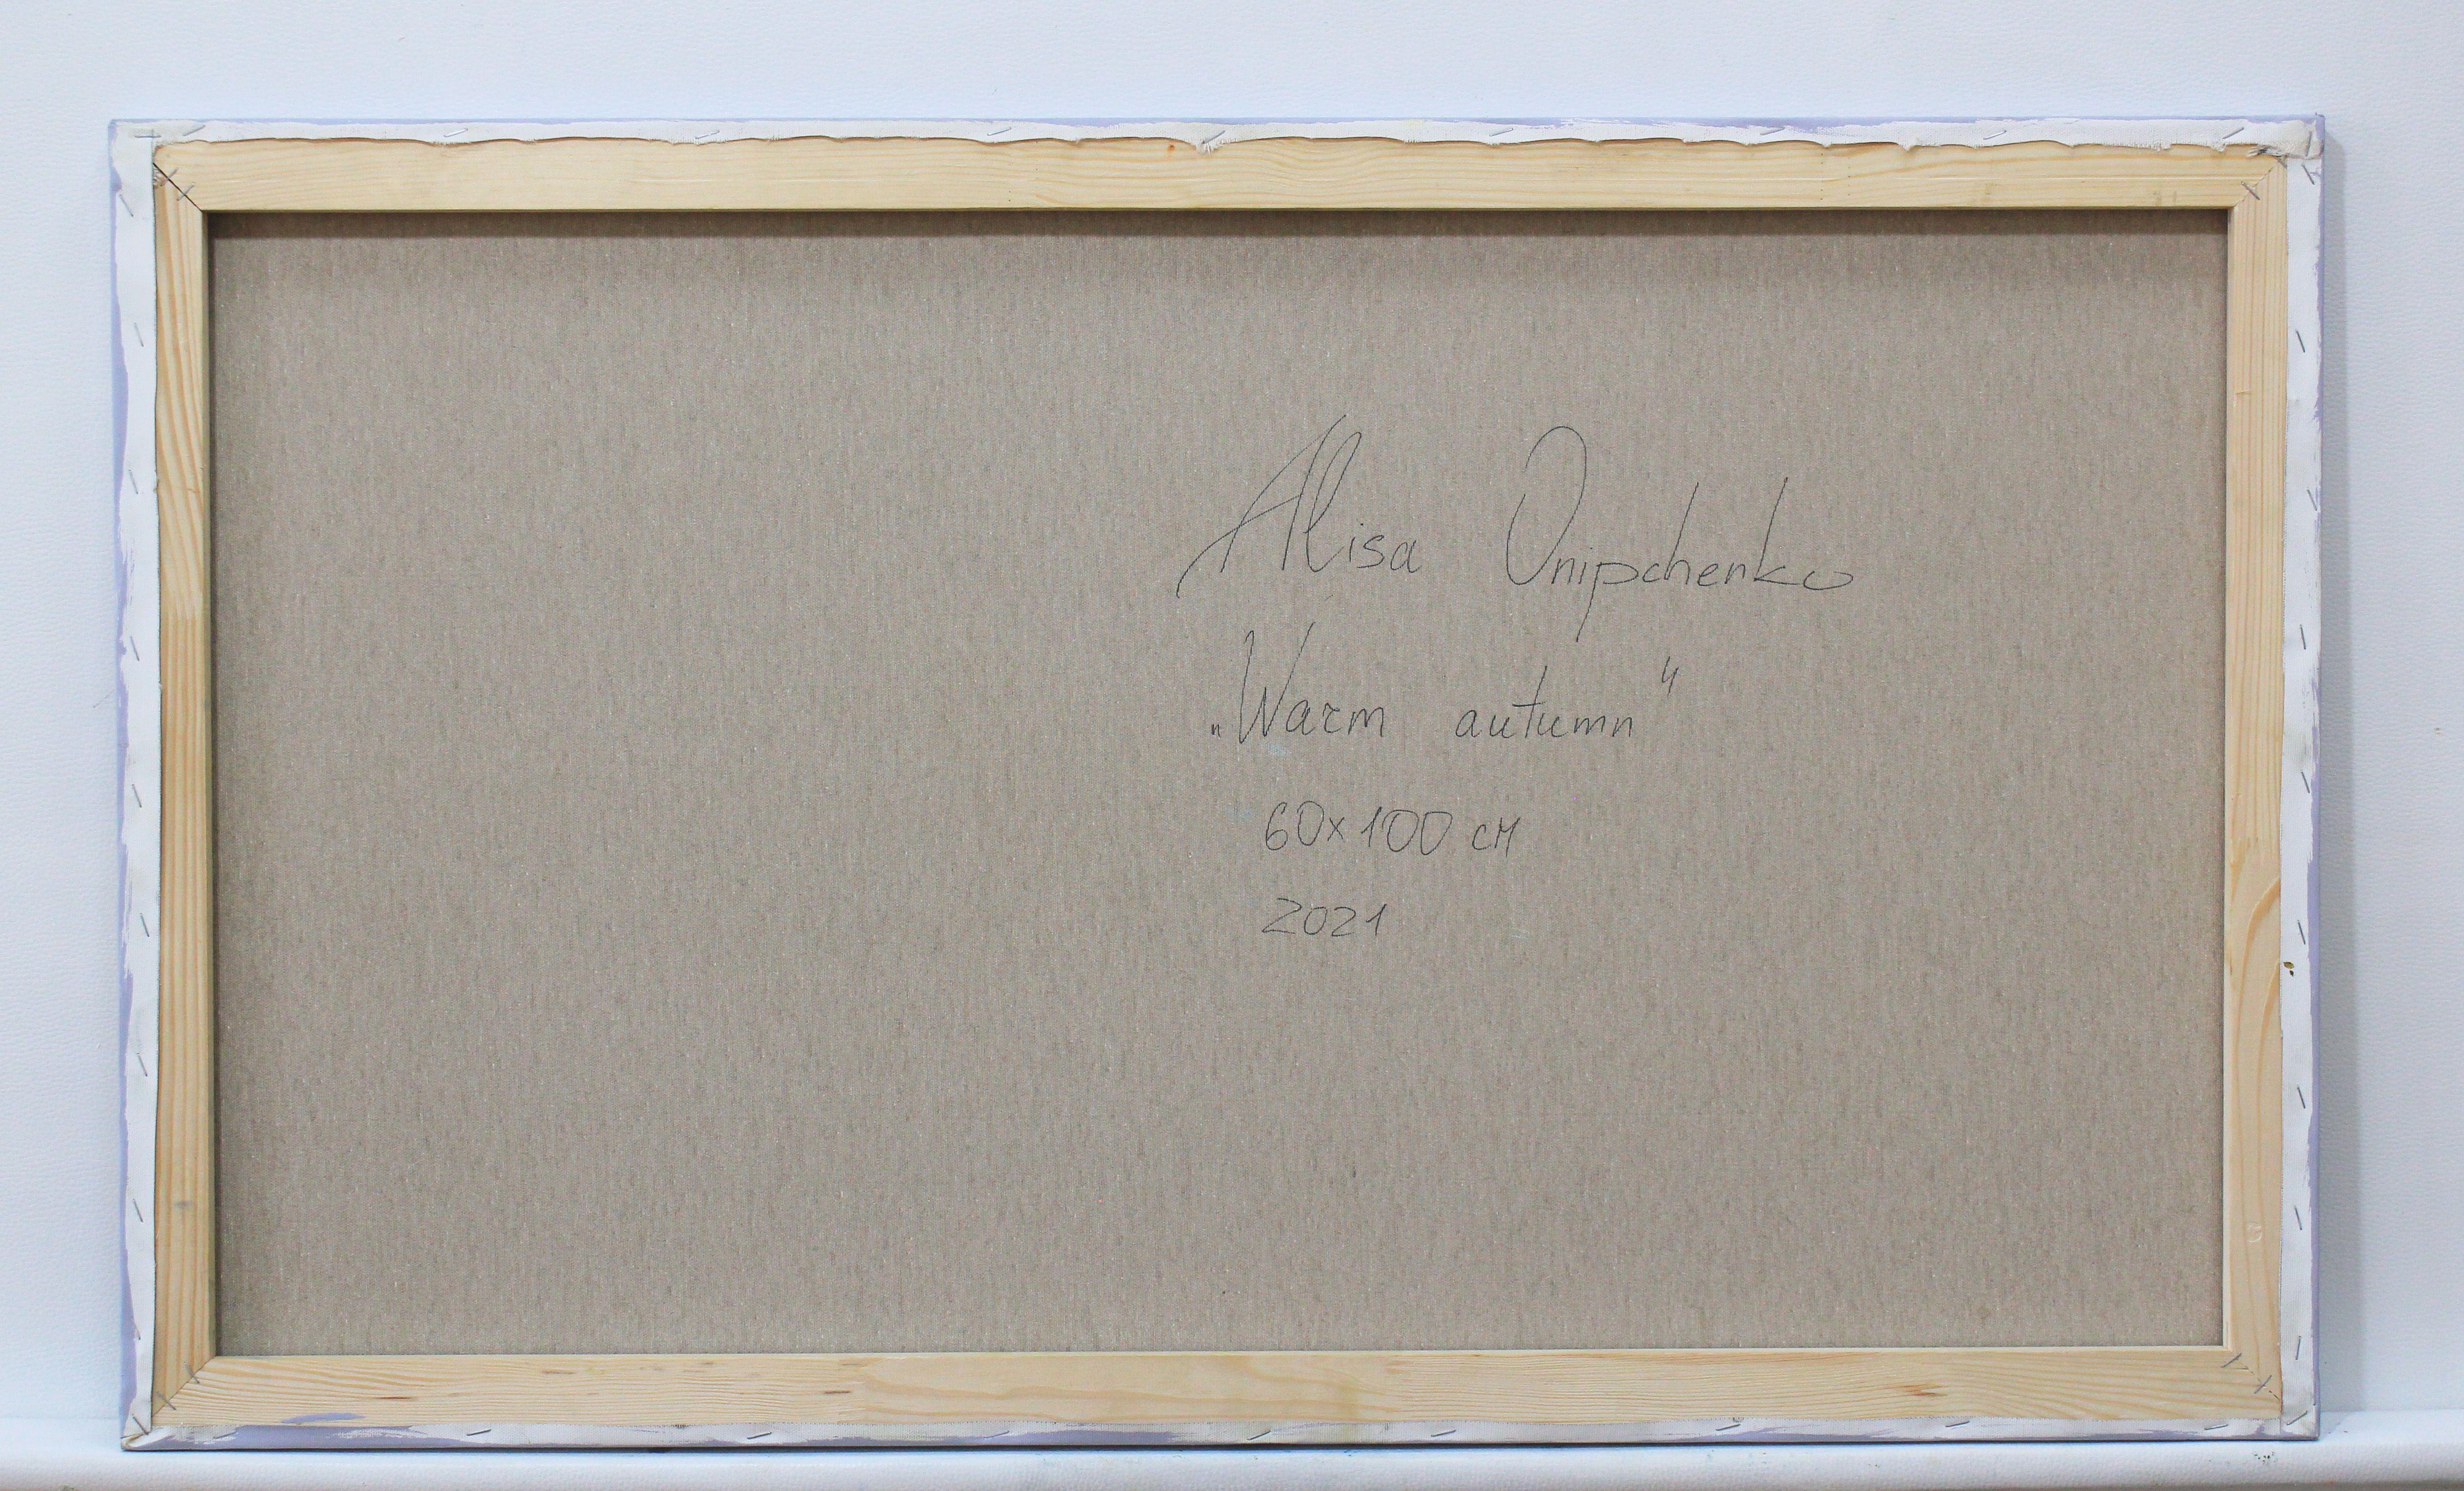 Alisa Onipchenko
„Warm autumn“
60x100 см
2021